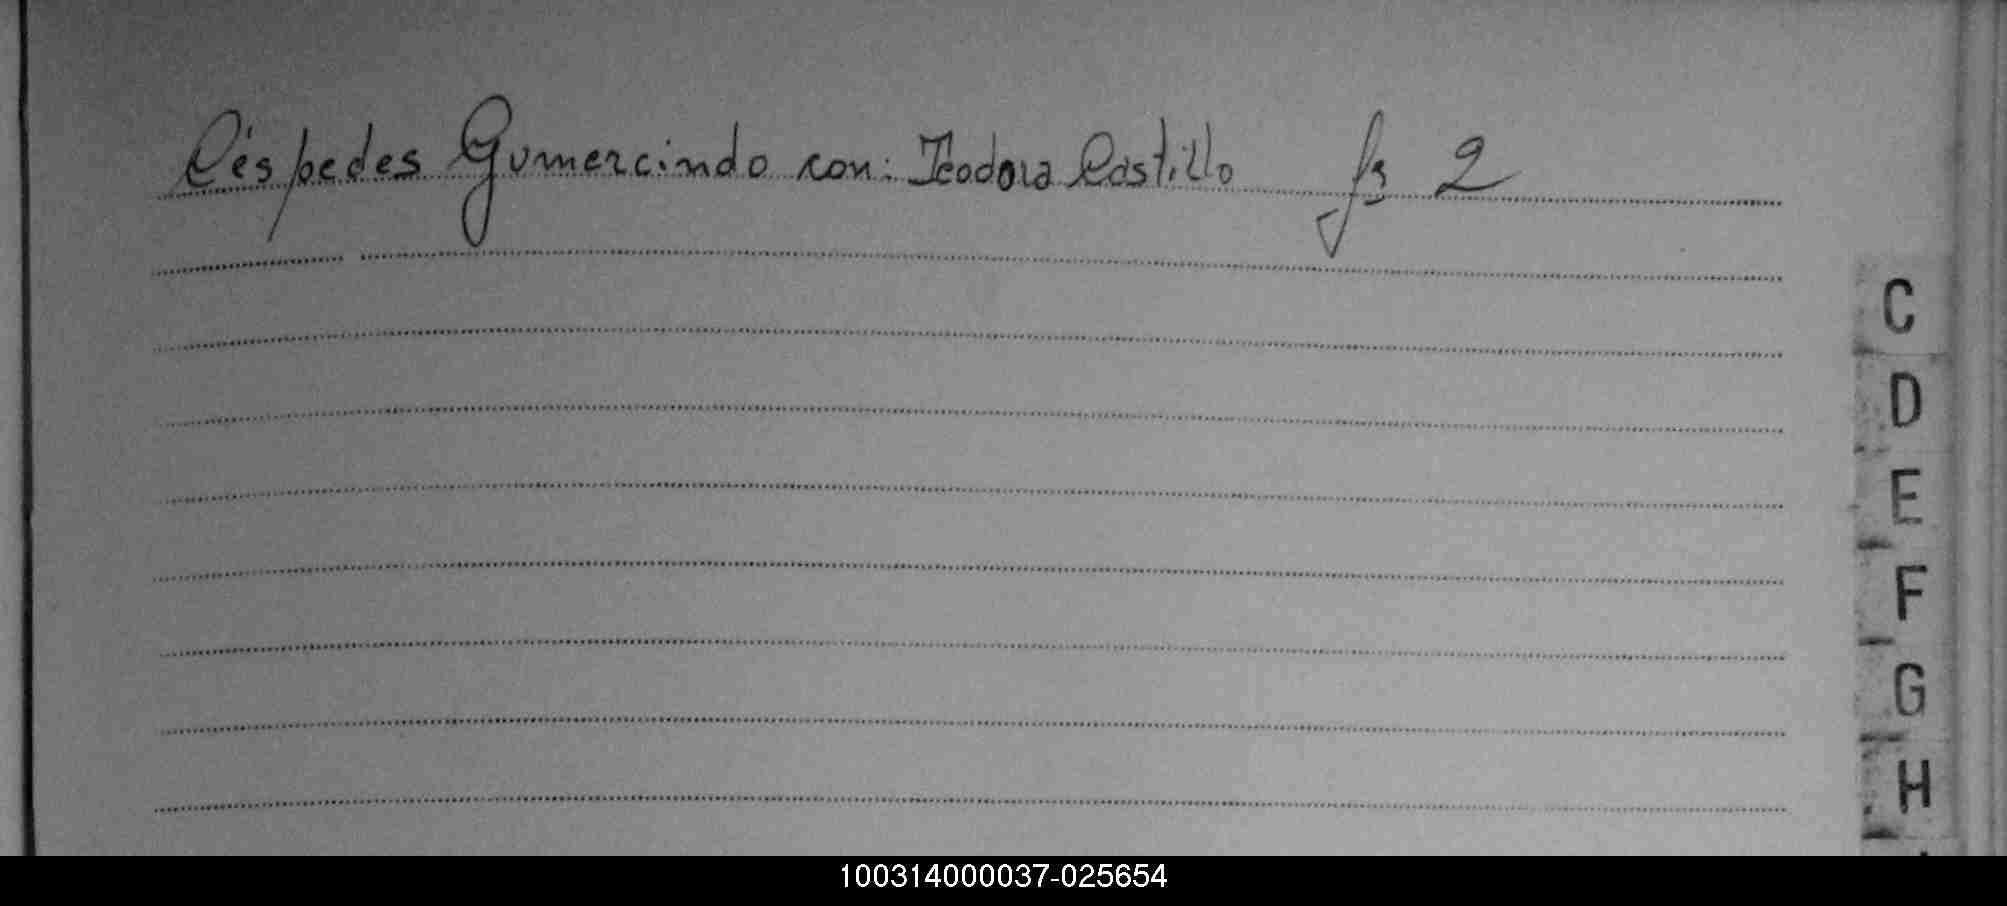 Céspedes Gumercindo con: Teodora Castillo fs 2
C
D
E
F
G
H
100314000037-025654